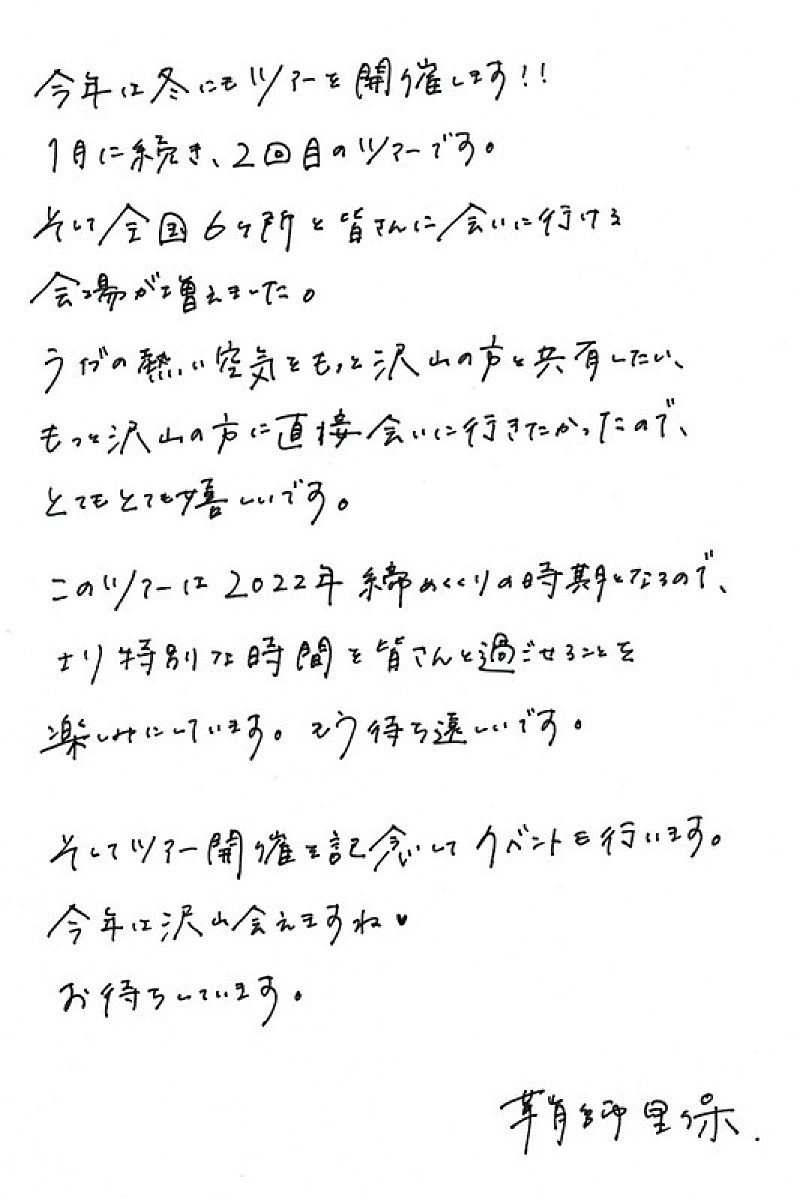 今年は冬にもツアーを開催します!!
1月に続き、2回目のツアーです。
そして全国6ヶ所と皆さんに会いに行ける
会場が増えました。
ライブの熱い空気をもっと沢山の方と共有したい、
もっと沢山の方に直接会いに行きたかったので、
とてもとても嬉しいです。
このツアーは2022年締めくくりの時期となるので、
より特別な時間を皆さんと過ごせることを
楽しみにしています。もう待ち遠しいです。
そしてツアー開催を記念してイベントも行います。
今年は沢山会えますね♥
お待ちしています。
鞘師里保.